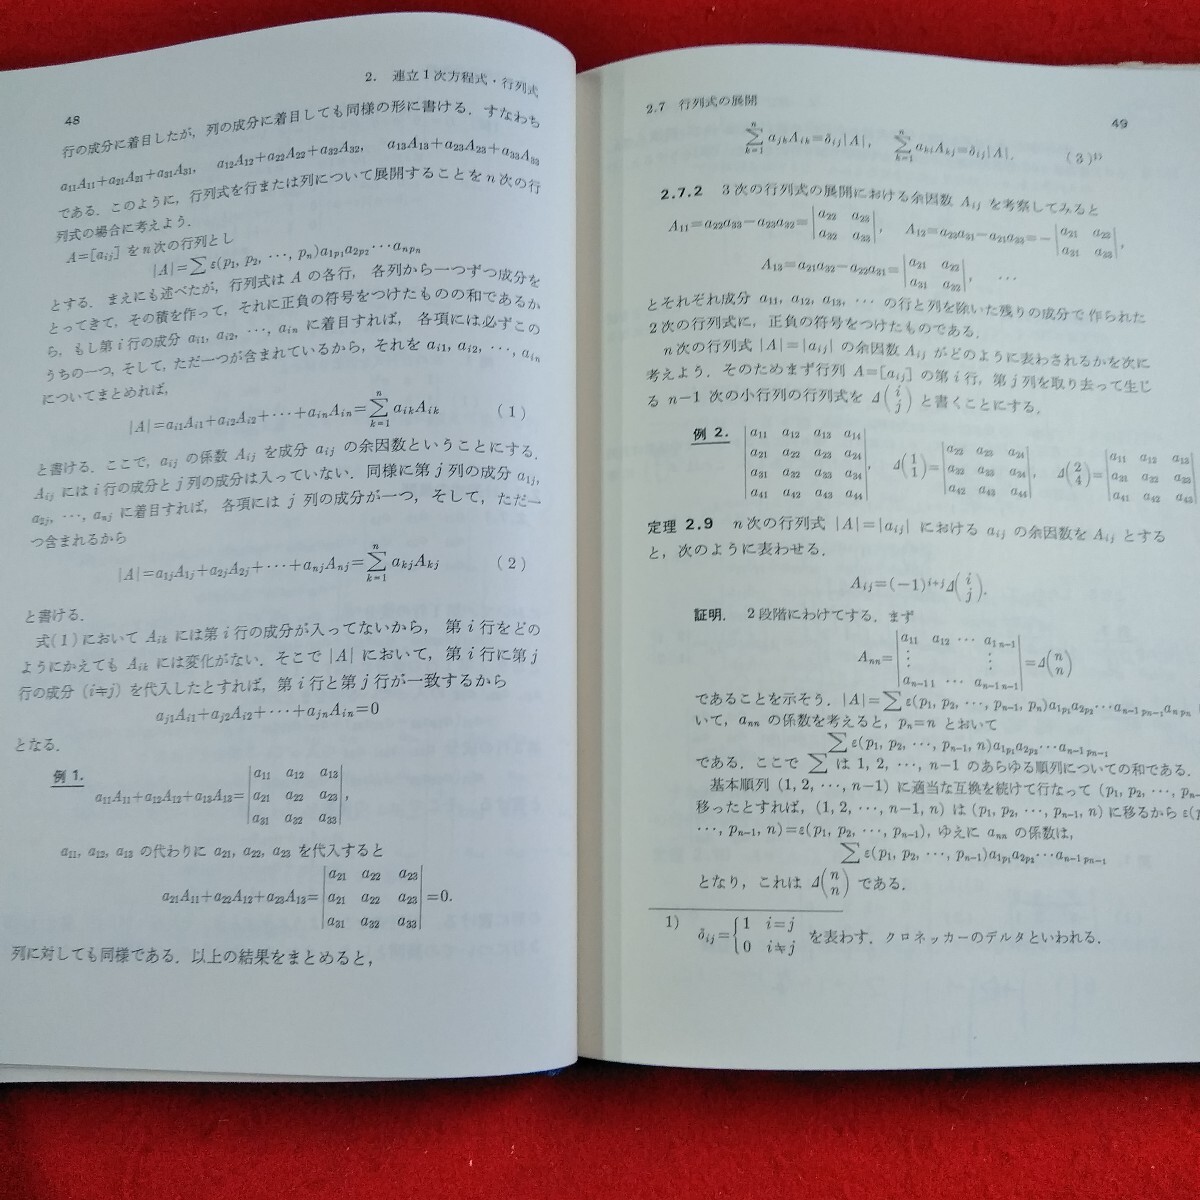 2. 連立1次方程式・行列式
48
行の成分に着目したが，列の成分に着目しても同様の形に書ける．すなわち
a₁₁A₁₁+a₂₁A₂₁+a₃₁A₃₁, a₁₂A₁₂+a₂₂A₂₂+a₃₂A₃₂, a₁₃A₁₃+a₂₃A₂₃+a₃₃A₃₃
である．このように，行列式を行または列について展開することを n 次の行
列式の場合に考えよう．
A=[aᵢⱼ] を n 次の行列とし
|A|=∑ε(p₁, p₂, ⋯, pₙ)a₁ₚ₁a₂ₚ₂⋯aₙₚₙ
とする．まえにも述べたが，行列式は A の各行，各列から一つずつ成分を
とってきて，その積を作って，それに正負の符号をつけたものの和であるか
ら，もし第 i 行の成分 aᵢ₁, aᵢ₂, ⋯, aᵢₙ に着目すれば，各項には必ずこの
うちの一つ，そして，ただ一つが含まれているから，それを aᵢ₁, aᵢ₂, ⋯, aᵢₙ
についてまとめれば，
|A|=aᵢ₁Aᵢ₁+aᵢ₂Aᵢ₂+⋯+aᵢₙAᵢₙ=∑ₖ₌₁ⁿ aᵢₖAᵢₖ (1)
と書ける．ここで，aᵢⱼ の係数 Aᵢⱼ を成分 aᵢⱼ の余因数ということにする．
Aᵢⱼ には i 行の成分と j 列の成分は入っていない．同様に第 j 列の成分 a₁ⱼ,
a₂ⱼ, ⋯, aₙⱼ に着目すれば，各項には j 列の成分が一つ，そして，ただ一
つ含まれるから
|A|=a₁ⱼA₁ⱼ+a₂ⱼA₂ⱼ+⋯+aₙⱼAₙⱼ=∑ₖ₌₁ⁿ aₖⱼAₖⱼ (2)
と書ける．
式(1)において Aᵢₖ には第 i 行の成分が入ってないから，第 i 行をどの
ようにかえても Aᵢₖ には変化がない．そこで |A| において，第 i 行に第 j
行の成分 (i≠j) を代入したとすれば，第 i 行と第 j 行が一致するから
aⱼ₁Aᵢ₁+aⱼ₂Aᵢ₂+⋯+aⱼₙAᵢₙ=0
となる．
例 1.
a₁₁A₁₁+a₁₂A₁₂+a₁₃A₁₃=
|a₁₁ a₁₂ a₁₃|
|a₂₁ a₂₂ a₂₃|,
|a₃₁ a₃₂ a₃₃|
a₁₁, a₁₂, a₁₃ の代わりに a₂₁, a₂₂, a₂₃ を代入すると
a₂₁A₁₁+a₂₂A₁₂+a₂₃A₁₃=
|a₂₁ a₂₂ a₂₃|
|a₂₁ a₂₂ a₂₃|=0.
|a₃₁ a₃₂ a₃₃|
列に対しても同様である．以上の結果をまとめると，
2.7 行列式の展開
49
∑ₖ₌₁ⁿ aⱼₖAᵢₖ=δᵢⱼ|A|, ∑ₖ₌₁ⁿ aₖᵢAₖⱼ=δᵢⱼ|A|. (3)¹⁾
2.7.2 3次の行列式の展開における余因数 Aᵢⱼ を考察してみると
A₁₁=a₂₂a₃₃−a₂₃a₃₂=|a₂₂ a₂₃|, A₁₂=a₂₃a₃₁−a₂₁a₃₃=−|a₂₁ a₂₃|,
|a₃₂ a₃₃| |a₃₁ a₃₃|
A₁₃=a₂₁a₃₂−a₂₂a₃₁=|a₂₁ a₂₂|, ⋯
|a₃₁ a₃₂|
とそれぞれ成分 a₁₁, a₁₂, a₁₃, ⋯ の行と列を除いた残りの成分で作られた
2次の行列式に，正負の符号をつけたものである．
n 次の行列式 |A|=|aᵢⱼ| の余因数 Aᵢⱼ がどのように表わされるかを次に
考えよう．そのためまず行列 A=[aᵢⱼ] の第 i 行，第 j 列を取り去って生じ
る n−1 次の小行列の行列式を Δ(i j) と書くことにする．
例 2.
|a₁₁ a₁₂ a₁₃ a₁₄|
|a₂₁ a₂₂ a₂₃ a₂₄|
|a₃₁ a₃₂ a₃₃ a₃₄|,
|a₄₁ a₄₂ a₄₃ a₄₄|
Δ(1 1)=
|a₂₂ a₂₃ a₂₄|
|a₃₂ a₃₃ a₃₄|,
|a₄₂ a₄₃ a₄₄|
Δ(2 4)=
|a₁₁ a₁₂ a₁₃|
|a₃₁ a₃₂ a₃₃|
|a₄₁ a₄₂ a₄₃|
定理 2.9 n 次の行列式 |A|=|aᵢⱼ| における aᵢⱼ の余因数を Aᵢⱼ とする
と，次のように表わせる．
Aᵢⱼ=(−1)ⁱ⁺ʲΔ(i j).
証明． 2段階にわけてする．まず
Aₙₙ=
|a₁₁ a₁₂ ⋯ a₁ₙ₋₁|
|⋮ ⋮|=Δ(n n)
|aₙ₋₁₁ ⋯ aₙ₋₁ₙ₋₁|
であることを示そう．|A|=∑ε(p₁, p₂, ⋯, pₙ₋₁, pₙ)a₁ₚ₁a₂ₚ₂⋯aₙ₋₁ₚₙ₋₁aₙₚₙ
いて，aₙₙ の係数を考えると，pₙ=n とおいて
∑ε(p₁, p₂, ⋯, pₙ₋₁, n)a₁ₚ₁a₂ₚ₂⋯aₙ₋₁ₚₙ₋₁
である．ここで ∑ は 1, 2, ⋯, n−1 のあらゆる順列についての和である．
基本順列 (1, 2, ⋯, n−1) に適当な互換を続けて行なって (p₁, p₂, ⋯, pₙ₋
移ったとすれば，(1, 2, ⋯, n−1, n) は (p₁, p₂, ⋯, pₙ₋₁, n) に移るから ε(p
⋯, pₙ₋₁, n)=ε(p₁, p₂, ⋯, pₙ₋₁), ゆえに aₙₙ の係数は，
∑ε(p₁, p₂, ⋯, pₙ₋₁)a₁ₚ₁a₂ₚ₂⋯aₙ₋₁ₚₙ₋₁
となり，これは Δ(n n) である．
1) δᵢⱼ={1 i=j
{0 i≠j を表わす．クロネッカーのデルタといわれる．